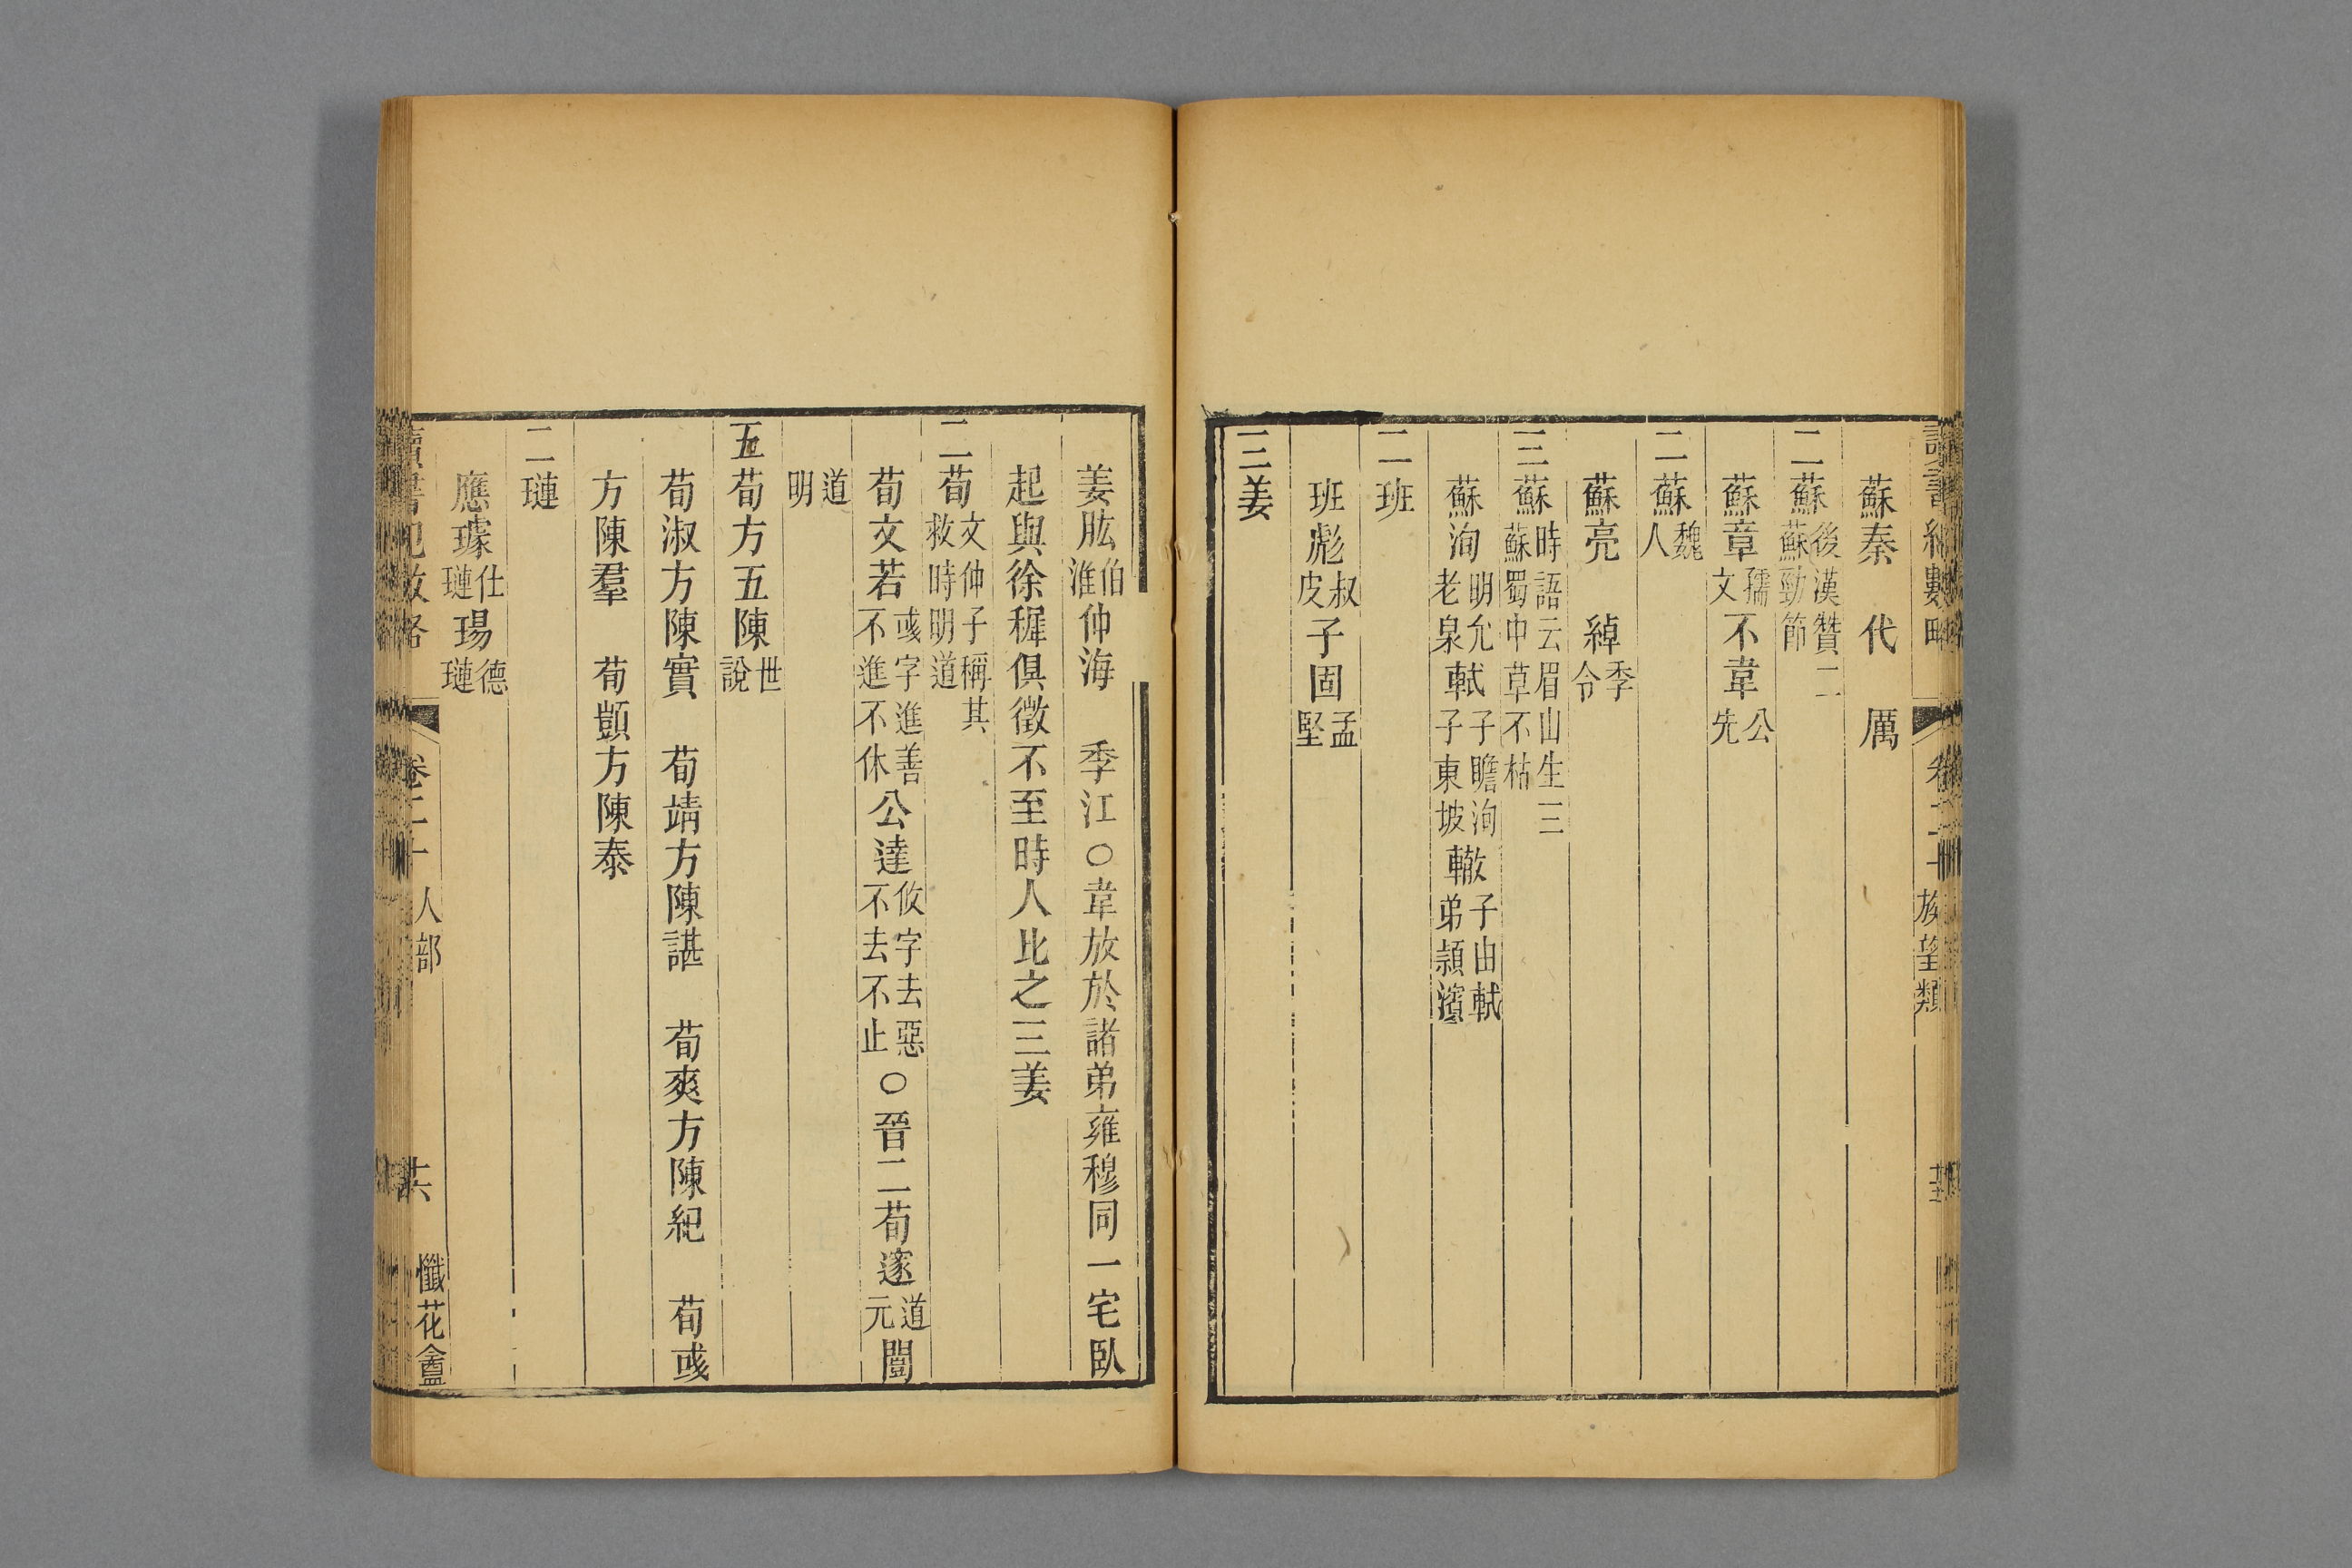 讀書紀數略 卷二十 族望類
蘇秦 代 厲
二蘇後漢贊二蘇勁節
蘇章孺文不韋公先
二蘇魏人
蘇亮 綽季令
三蘇時語云眉山生三蘇蜀中草不枯
蘇洵明允老泉軾子瞻洵子東坡轍子由軾弟潁濱
二班
班彪叔皮子固孟堅
三姜
姜肱伯淮仲海 季江○韋放於諸弟雍穆同一宅臥
起與徐穉俱徵不至時人比之三姜
二荀文仲子稱其救時明道
荀文若彧字進善不進不休公達攸字去惡不去不止○晉二荀邃道元闓
道明
五荀方五陳世說
荀淑方陳實 荀靖方陳諶 荀爽方陳紀 荀彧
方陳羣 荀顗方陳泰
二璉
應璩仕璉瑒德璉
讀書紀數略 卷二十 人部 十六 懺花盦